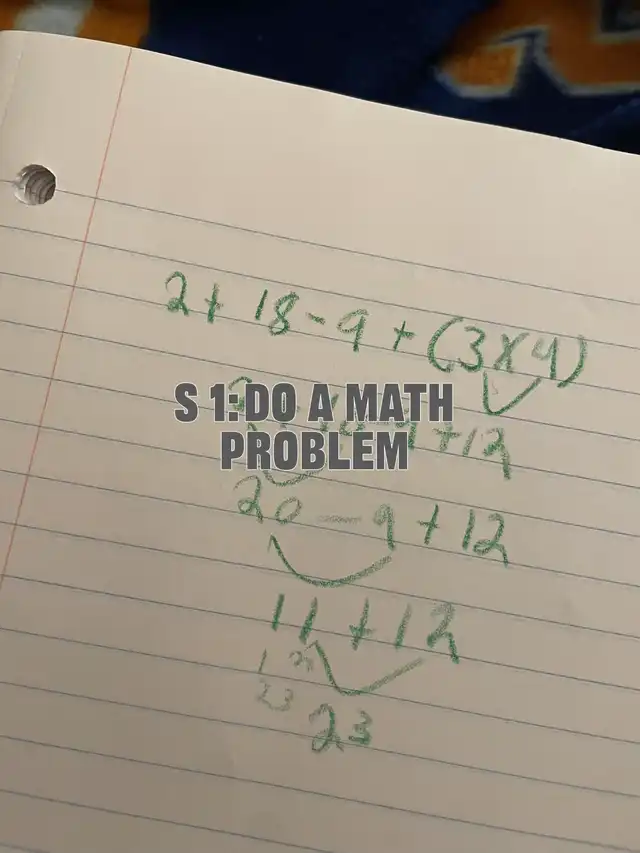 2 + 18 - 9 + (3 x 4)
S 1: DO A MATH
PROBLEM
+ 12
20 - 9 + 12
11 + 12
23
23